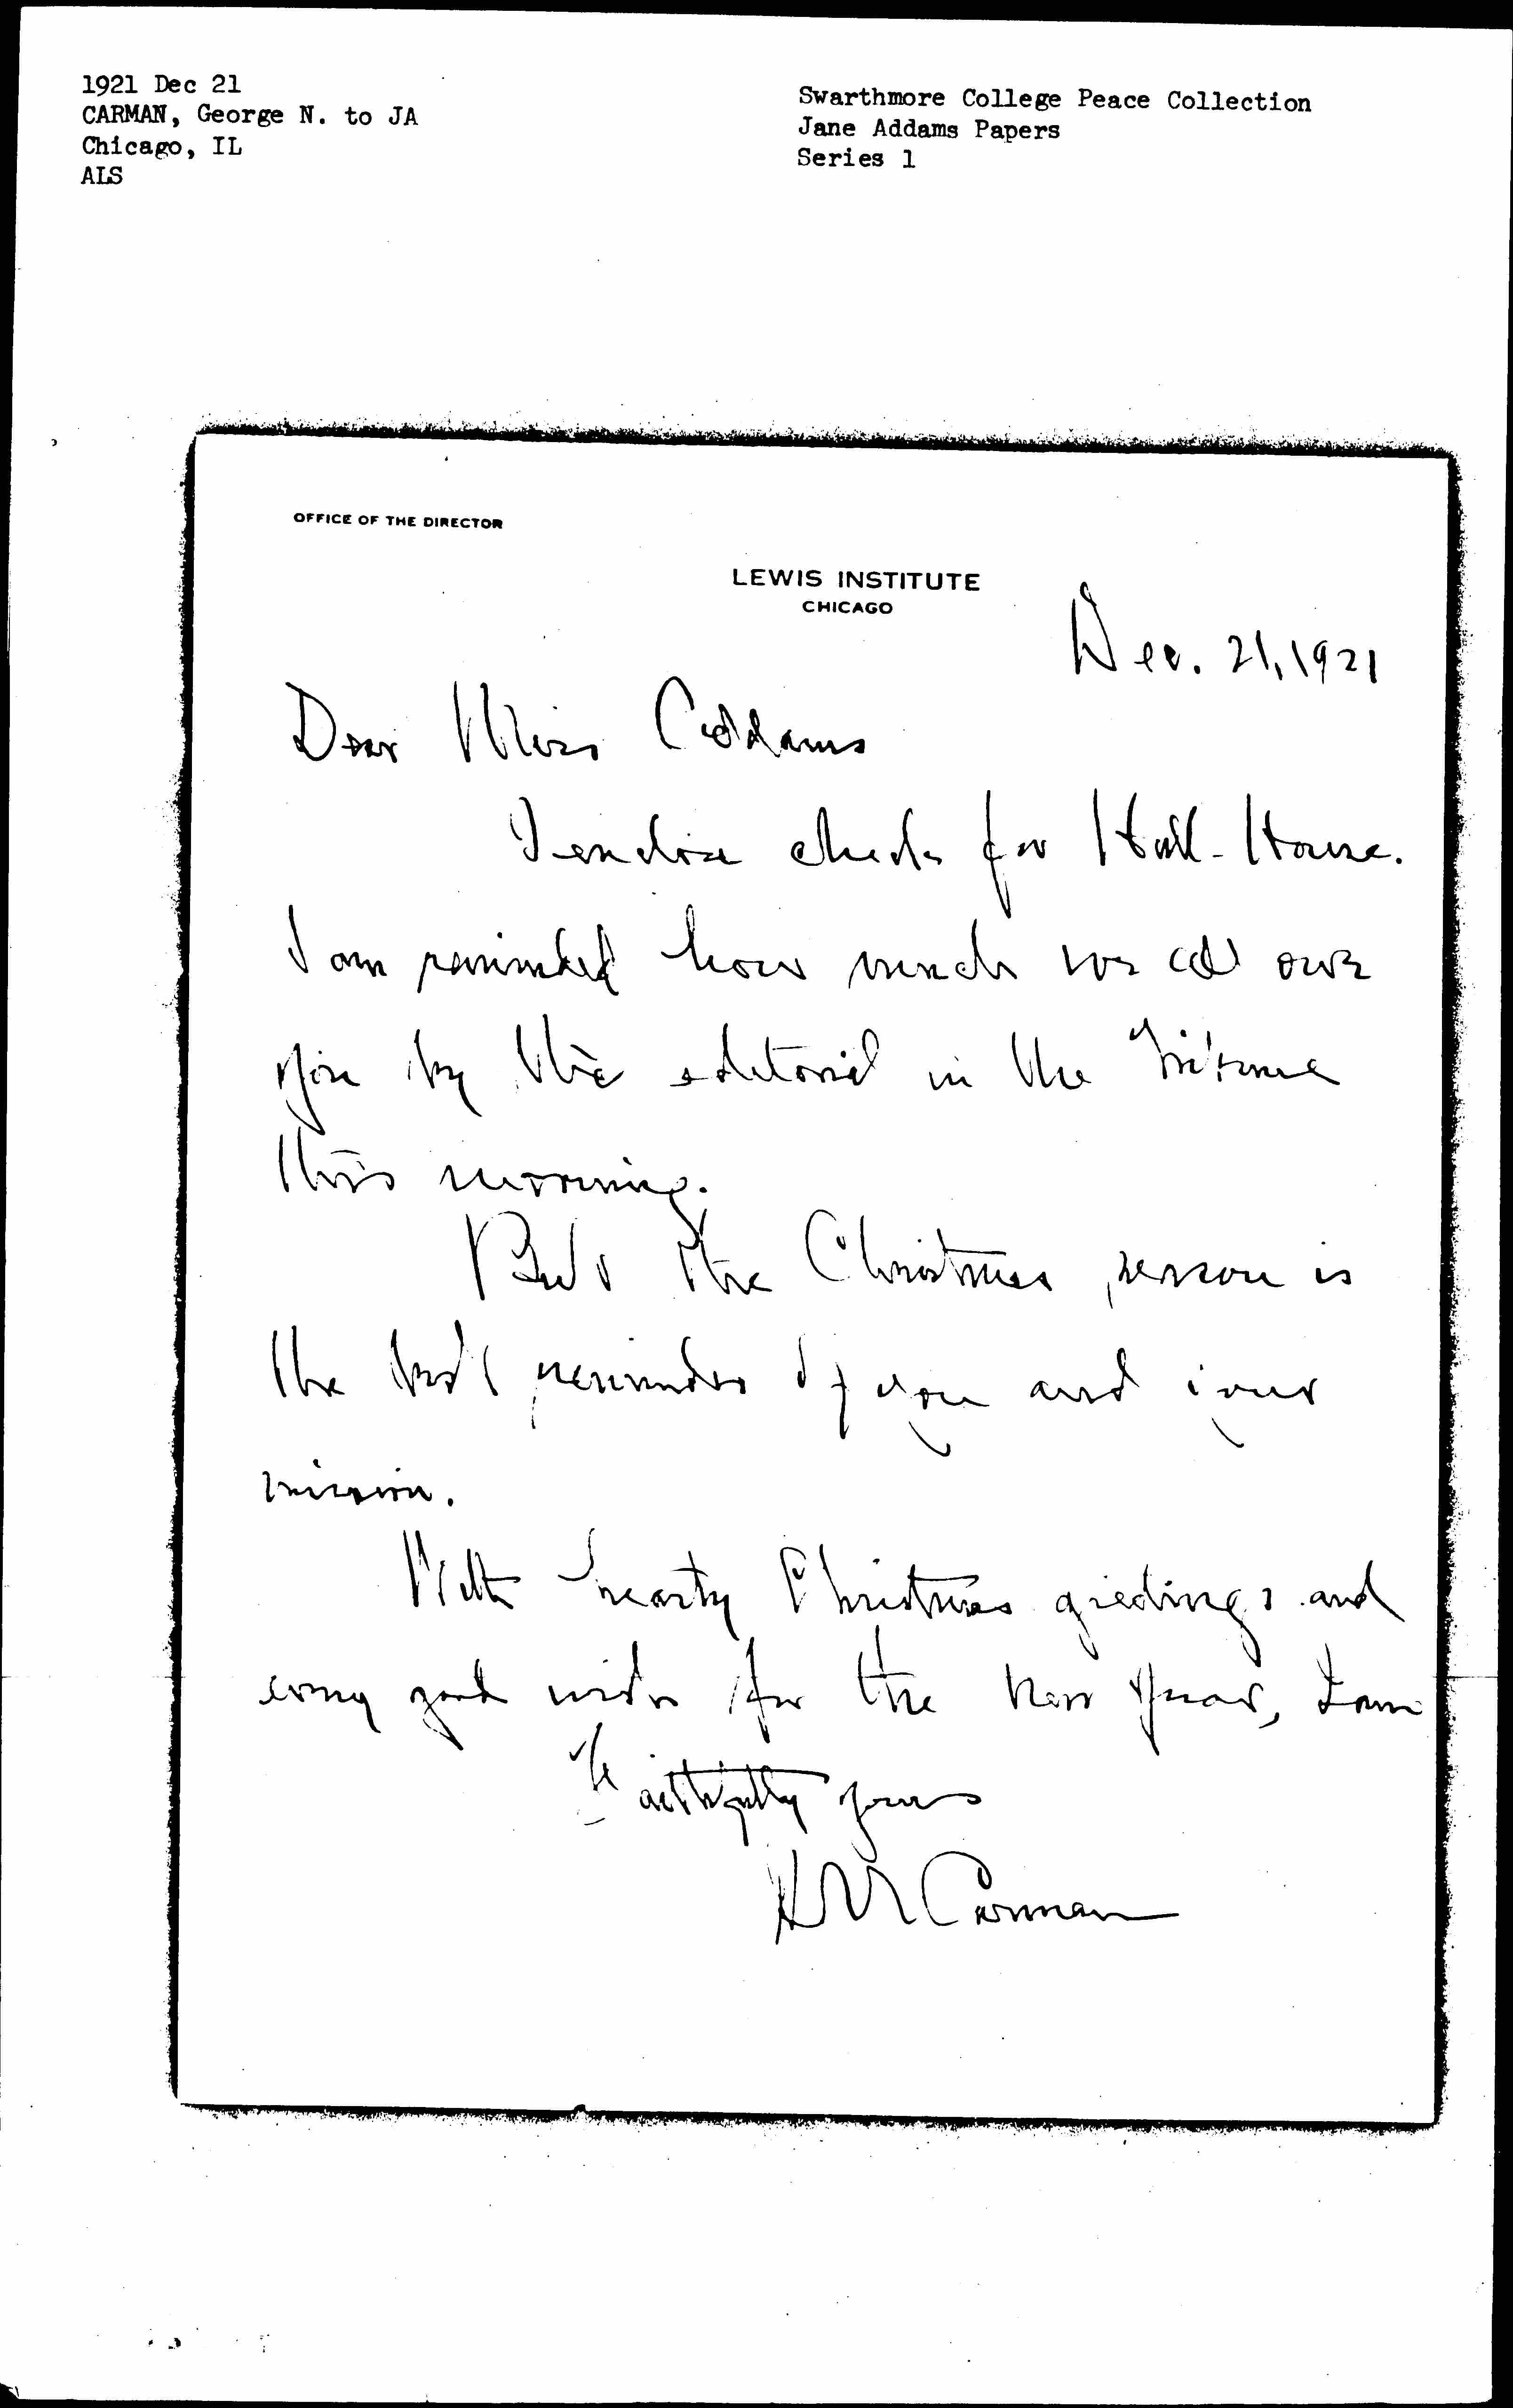 1921 Dec 21
CARMAN, George N. to JA
Chicago, IL
ALS
Swarthmore College Peace Collection
Jane Addams Papers
Series 1
OFFICE OF THE DIRECTOR
LEWIS INSTITUTE
CHICAGO
Dec. 21, 1921
Dear Miss Addams
I enclose check for Hull-House.
I am reminded how much we all owe
you by the editorial in the Tribune
this morning.
But the Christmas season is
the best reminder of you and your
mission.
With hearty Christmas greetings and
every good wish for the New Year, I am
Faithfully yours
G N Carman